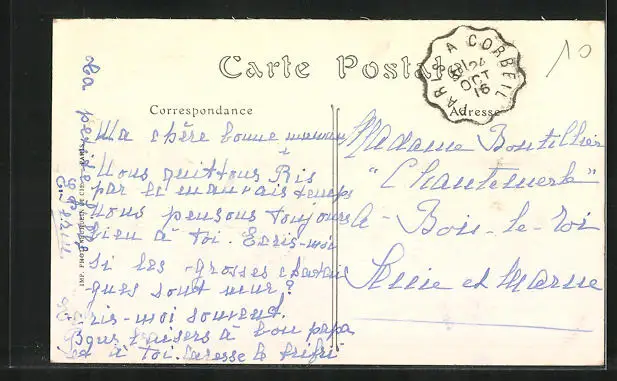 Carte Postale
Correspondance
Adresse
PAR S A CORBEIL
24
OCT
16
10
Ma chère bonne maman
Nous quittons Ris
par ce mauvais temps
Nous pensons toujours
bien à toi. Ecris-moi
si les grosses chatai
gnes sont mur?
Ecris-moi souvent.
Bons baisers à bon papa
et à toi. Caresse le frifri
La petite
Madame Boutillier
"Chantemerle"
à - Bois-le-Roi
Seine et Marne